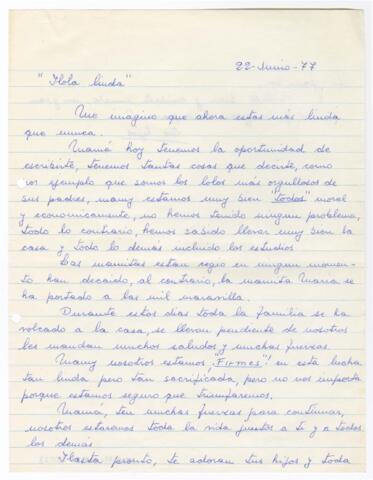 22-Junio-77
"Hola linda"
Me imagino que ahora estas más linda
que nunca.
Mamá hoy tenemos la oportunidad de
escribirte, tenemos tantas cosas que decirte, como
por ejemplo que somos los lolos más orgullosos de
sus padres, mamy estamos muy bien "todos" moral
y económicamente, no hemos tenido ningun problema,
todo lo contrario, hemos sabido llevar muy bien la
casa y todo lo demás incluido los estudios.
Las mamitas estan regio en ningun momen-
to han decaido, al contrario, la mamita Maria se
ha portado a las mil maravilla.
Durante estos dias toda la familia se ha
volcado a la casa, se llevan pendiente de nosotros
les mandan muchos saludos y muchas fuerzas.
Mamy nosotros estamos "Firmes" en esta lucha
tan linda pero tan sacrificada, pero no nos importa
porque estamos seguro que triunfaremos.
Mamá, ten muchas fuerzas para continuar,
nosotros estaremos toda la vida juntos a ti y a todos
los demás
Hasta pronto, te adoran tus hijos y toda